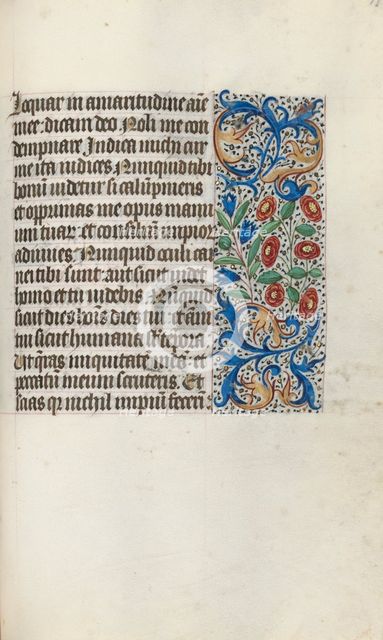 loquar in amaritudine aīe
mee. dicam deo Noli me con
dempnare Indica michi cur
me ita iudices Nunquid tibi
bonū uidetur si calūpnieris
et opprimas me opus manu
um tuar et consilium impior
adiuues Nunquid oculi car
nei tibi sunt aut sicut uidet
homo et tu uidebis Nunquid
sicut dies hoīs dies tui et ām
tui sicut humana st tēpora
Ut q̄ras iniquitatē meā et
peccatum meum scruteris. Et
scias qr nichil impiū fecerī